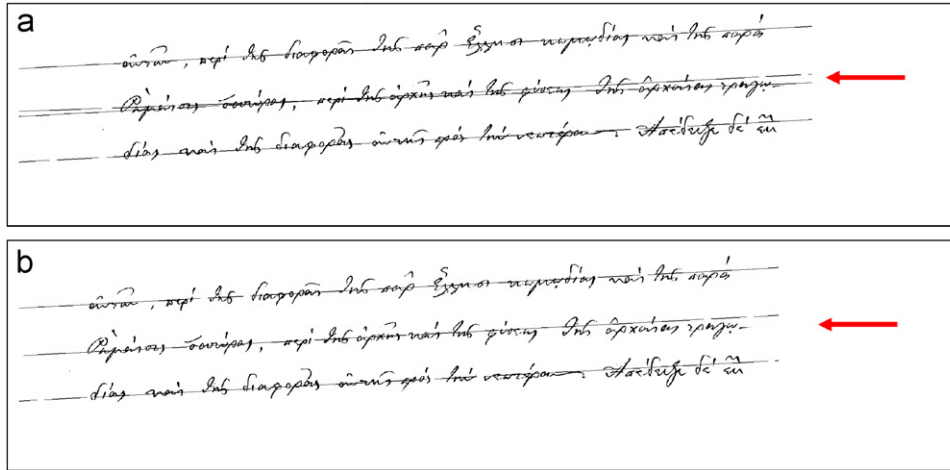 a
αὐτῶν, περὶ τῆς διαφορᾶς τῆς παρ' Ἕλλησι κωμῳδίας καὶ τῆς παρὰ
Ῥωμαίοις σατύρας, περὶ τῆς ἀρχῆς καὶ τῆς φύσεως τῆς ἀρχαίας τραγῳ-
δίας καὶ τῆς διαφορᾶς αὐτῆς πρὸς τὴν νεωτέραν. Ἀπέδειξε δὲ ἐν
b
αὐτῶν, περὶ τῆς διαφορᾶς τῆς παρ' Ἕλλησι κωμῳδίας καὶ τῆς παρὰ
Ῥωμαίοις σατύρας, περὶ τῆς ἀρχῆς καὶ τῆς φύσεως τῆς ἀρχαίας τραγῳ-
δίας καὶ τῆς διαφορᾶς αὐτῆς πρὸς τὴν νεωτέραν. Ἀπέδειξε δὲ ἐν